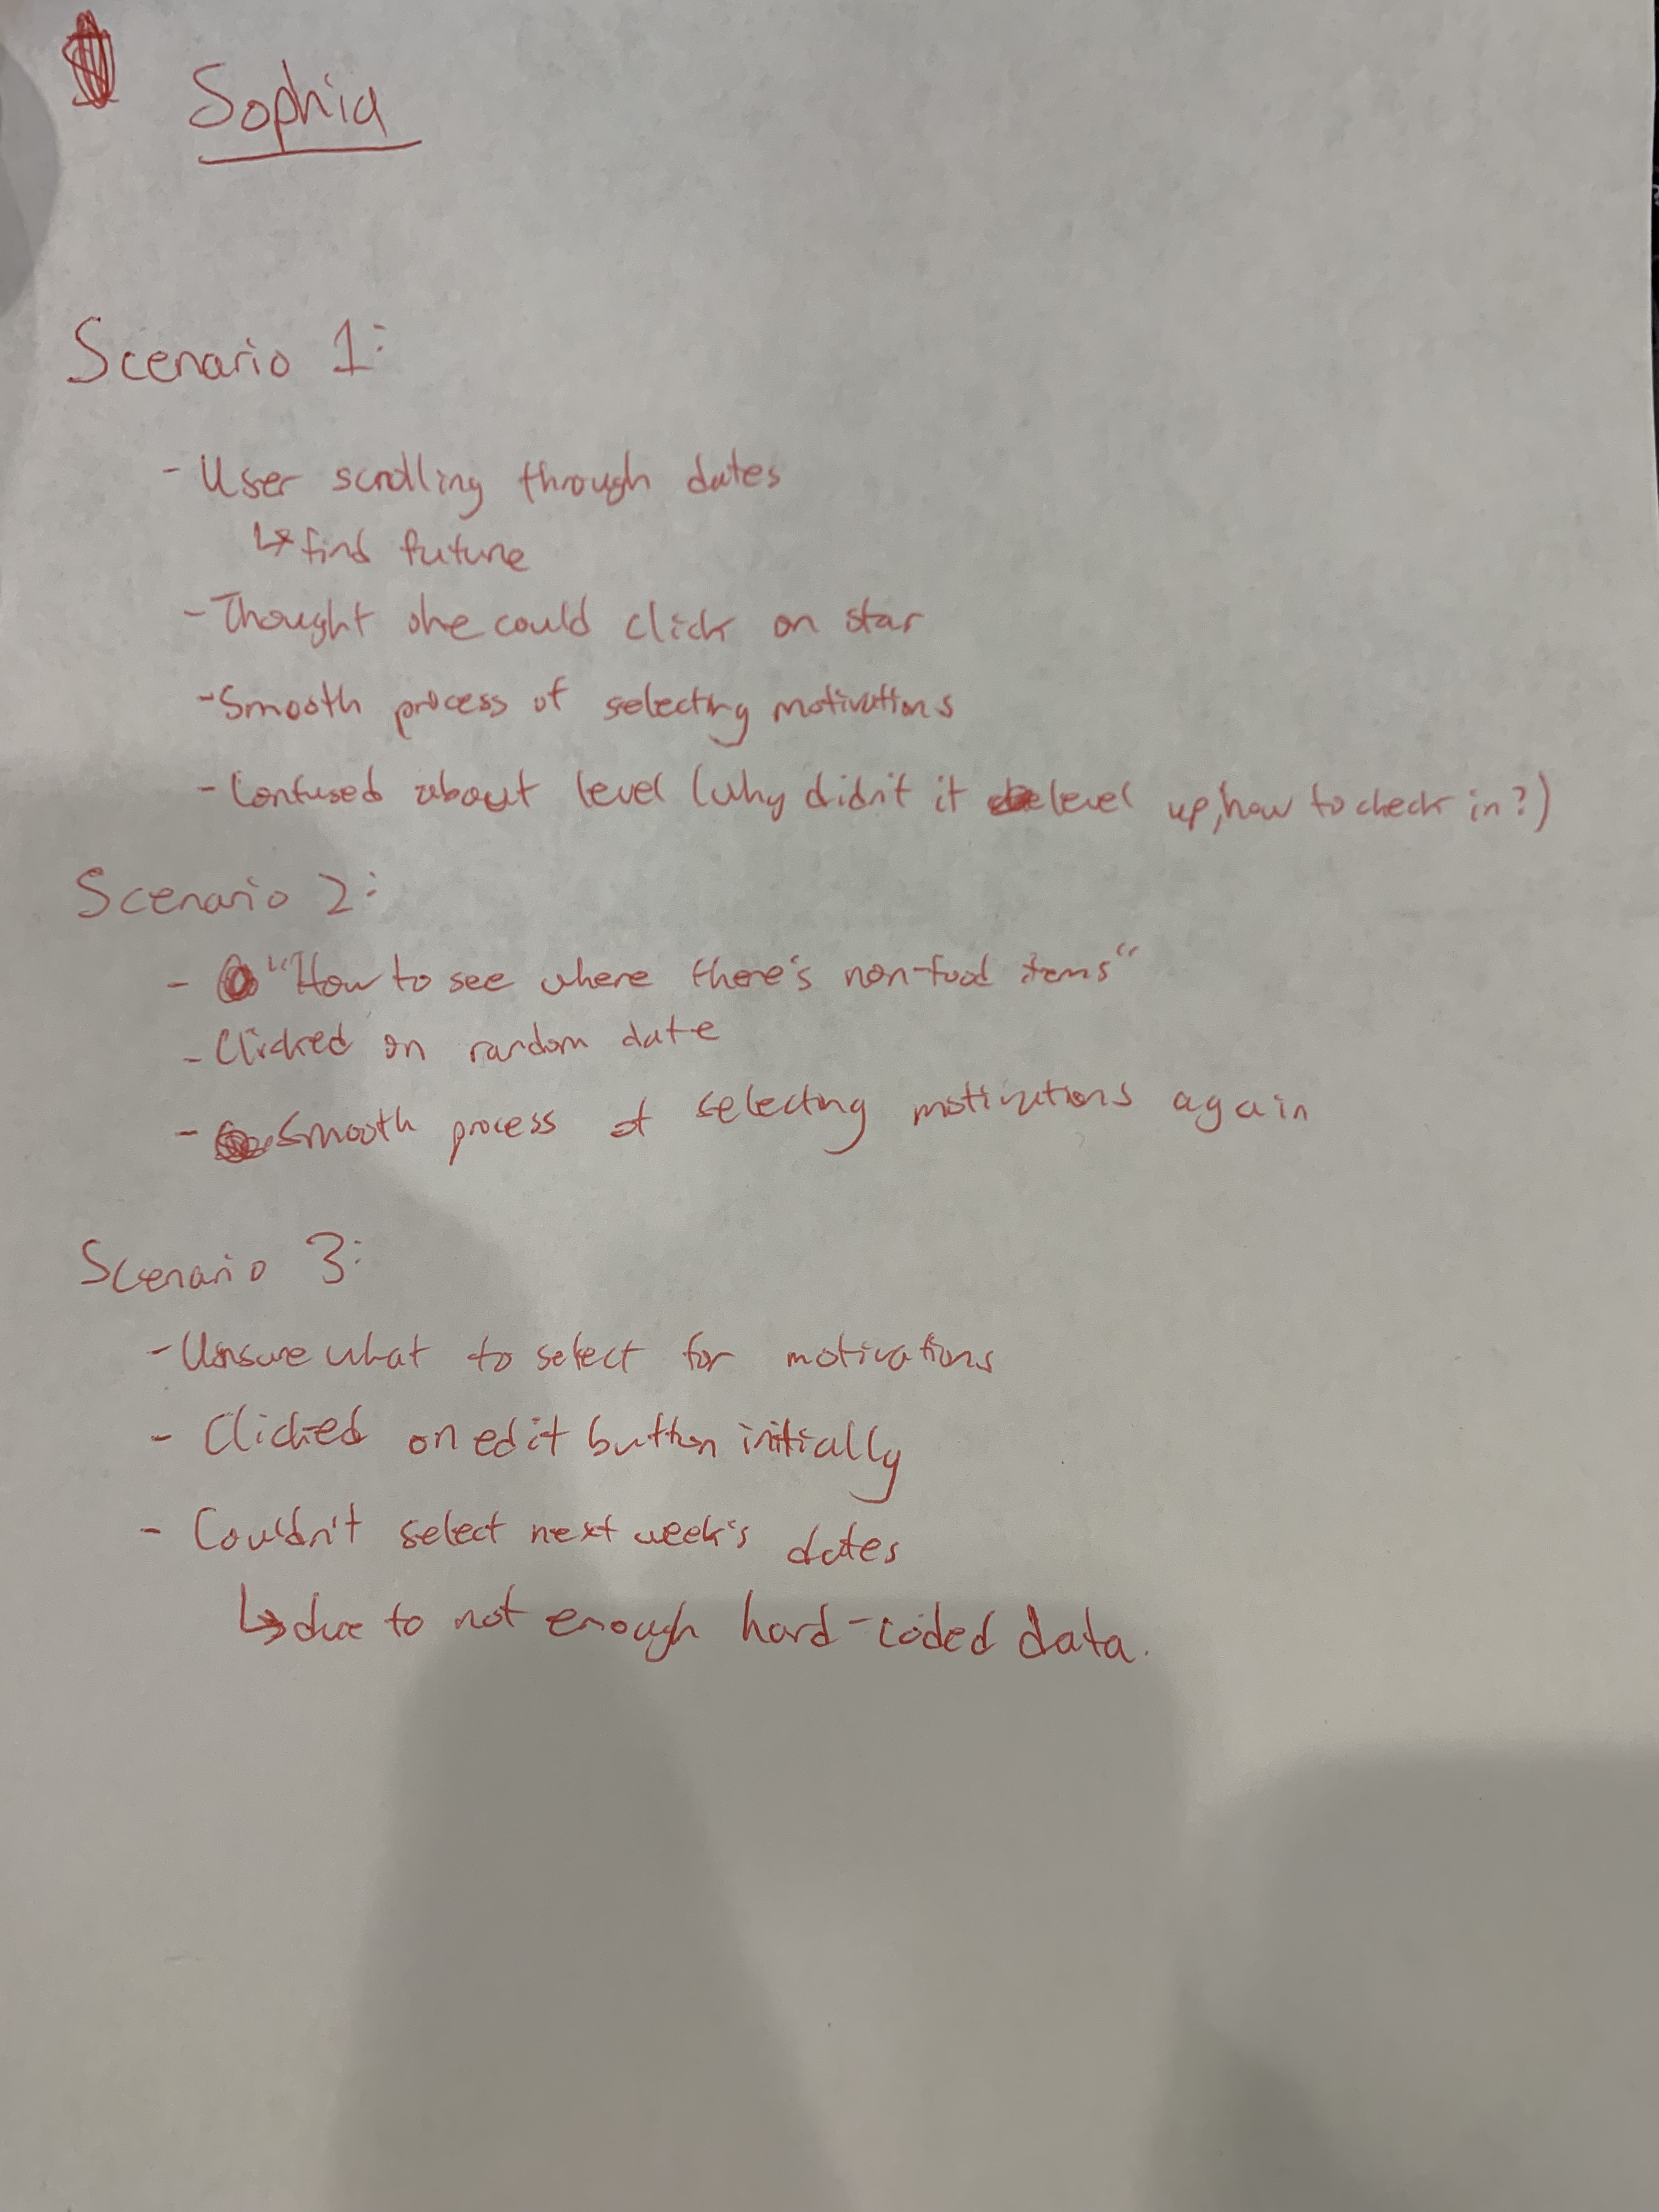 Sophia
Scenario 1:
- User scrolling through dates
↳ find future
- Thought she could click on star
- Smooth process of selecting motivations
- Confused about level (why didn't it level up, how to check in?)
Scenario 2:
- "How to see where there's non-food items"
- Clicked on random date
- Smooth process of selecting motivations again
Scenario 3:
- Unsure what to select for motivations
- Clicked on edit button initially
- Couldn't select next week's dates
↳ due to not enough hard-coded data.